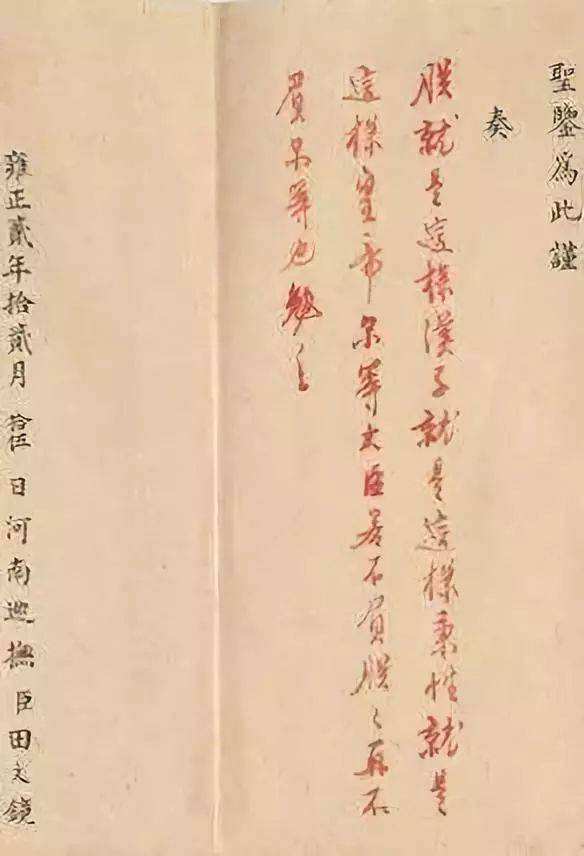 聖鑒爲此謹
奏
朕就是這樣漢子就是這樣秉性就是
這樣皇帝尔等大臣若不負朕朕再不
負尔等也勉之
雍正貳年拾貳月拾伍日河南廵撫臣田文鏡